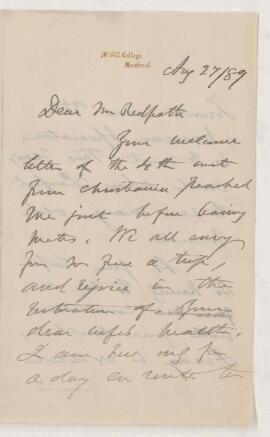 McGill College,
Montreal.
Aug 27/89
Dear Mr Redpath
Your welcome
letter of the 4th inst
from Christiania reached
me just before leaving
Metis. We all envy
you so fine a trip,
and rejoice in the
restoration of your
dear wife's health.
I am here only for
a day en route to